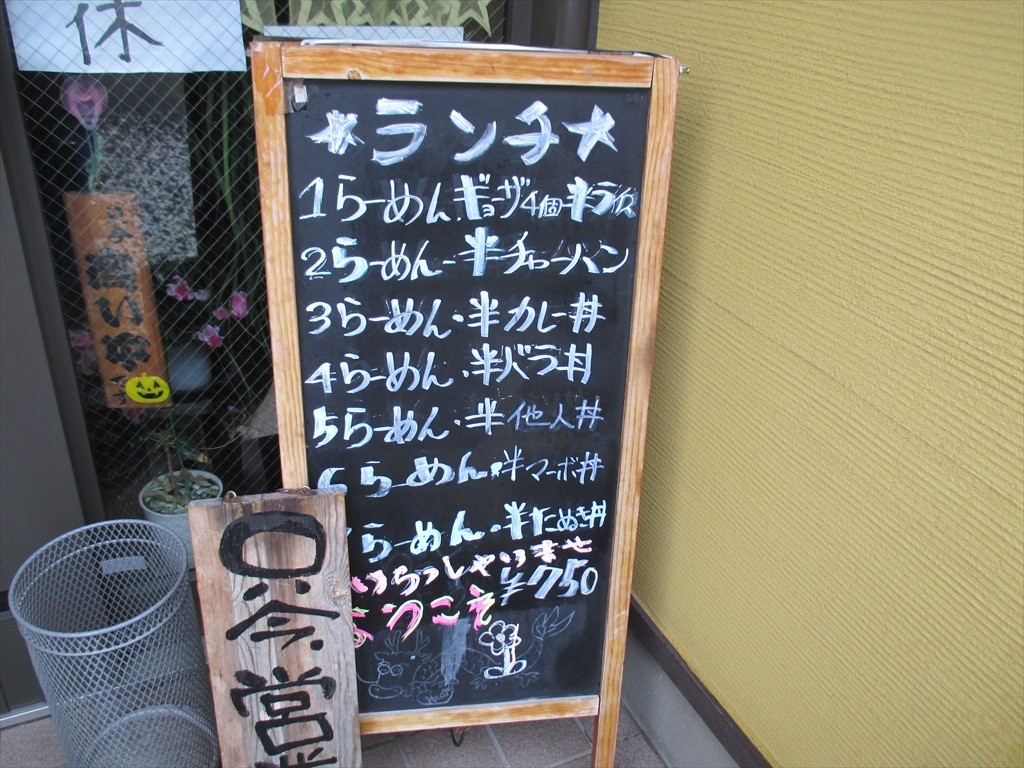 休
*ランチ★
1らーめん.ギョーザ4個.半ライス
2らーめん-半チャーハン
3らーめん・半カレー丼
4らーめん・半バラ丼
5らーめん・半他人丼
6らーめん・半マーボ丼
らーめん・半たぬき丼
いらっしゃいませ
¥750
ようこそ
只今営